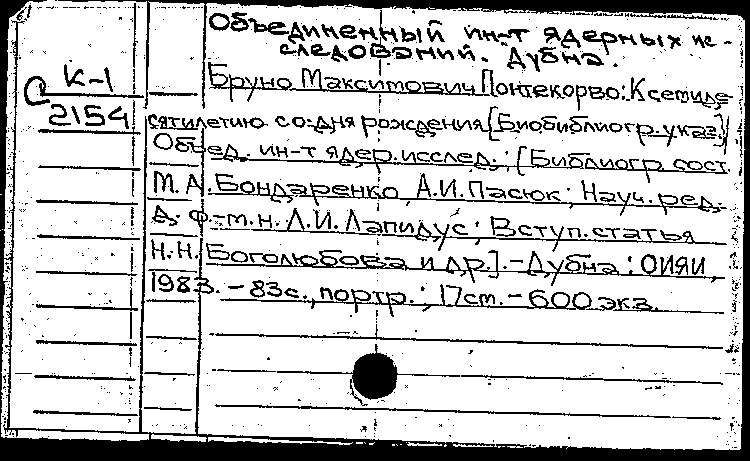 Объединенный ин-т ядерных ис-
следований. Дубна.
К-1
С 2154
Бруно Максимович Понтекорво: К семиде-
сятилетию со дня рождения [Биобиблиогр. указ.]/
Объед. ин-т ядер. исслед.; [Библиогр. сост.
М. А. Бондаренко, А.И. Пасюк; Науч. ред.
д. ф.-м. н. Л.И. Лапидус; Вступ. статья
Н.Н. Боголюбова и др.]. - Дубна: ОИЯИ,
1983. - 83 с., портр.; 17 см. - 600 экз.